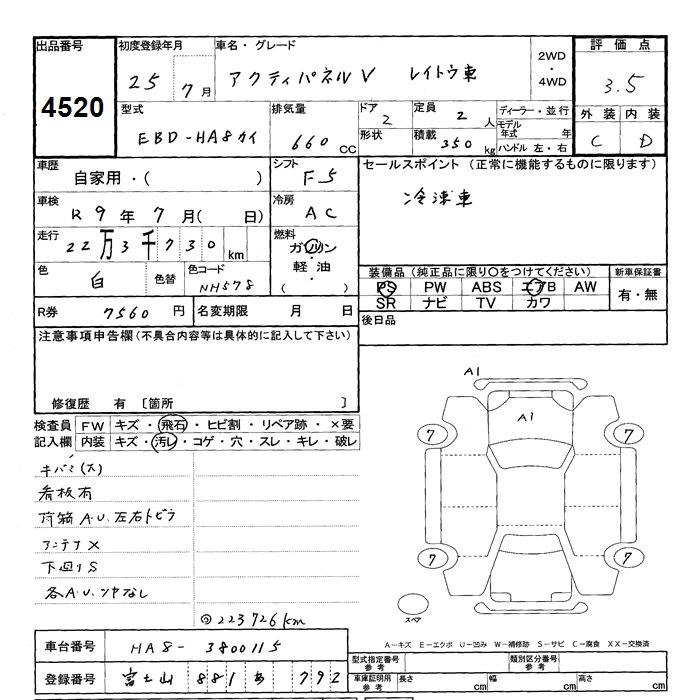 出品番号 初度登録年月 車名・グレード 2WD・4WD 評価点
4520 25 7月 アクティパネルV レイトウ車 3.5
型式 排気量 ドア 定員 ディーラー・並行 外装 内装
EBD-HA8カイ 660cc 2 2人 モデル年式 年 C D
形状 積載 350kg ハンドル 左・右
車歴 シフト セールスポイント(正常に機能するものに限ります)
自家用・( ) F5 冷凍車
車検 冷房
R9年7月( 日) AC
走行 燃料
22万3千730km ガソリン・軽油・( )
色 色替 色コード 装備品(純正品に限り○をつけてください) 新車保証書
白 NH578 PS PW ABS エアB AW 有・無
SR ナビ TV カワ
R券 7560円 名変期限 月 日 後日品
注意事項申告欄(不具合内容等は具体的に記入して下さい)
修復歴 有 〔箇所 〕
検査員記入欄 FW キズ・飛石・ヒビ割・リペア跡・×要
内装 キズ・汚レ・コゲ・穴・スレ・キレ・破レ
キバミ(大)
看板有
荷箱A.U.左右トビラ
アンテナX
下回りS
各A.U.ツヤなし
◎223726km
A1
A1
7 7
7 7
スペア
A−キズ E−エクボ U−凹み W−補修跡 S−サビ C−腐食 XX−交換済
車台番号 HA8-3800115
型式指定番号 参考 類別区分番号 参考
登録番号 富士山 881 あ 792
車庫証明用 参考 長さ cm 幅 cm 高さ cm